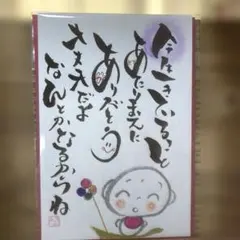 今を生きていること
あたりまえに
ありがとう
大丈夫だよ
なんとかなるからね